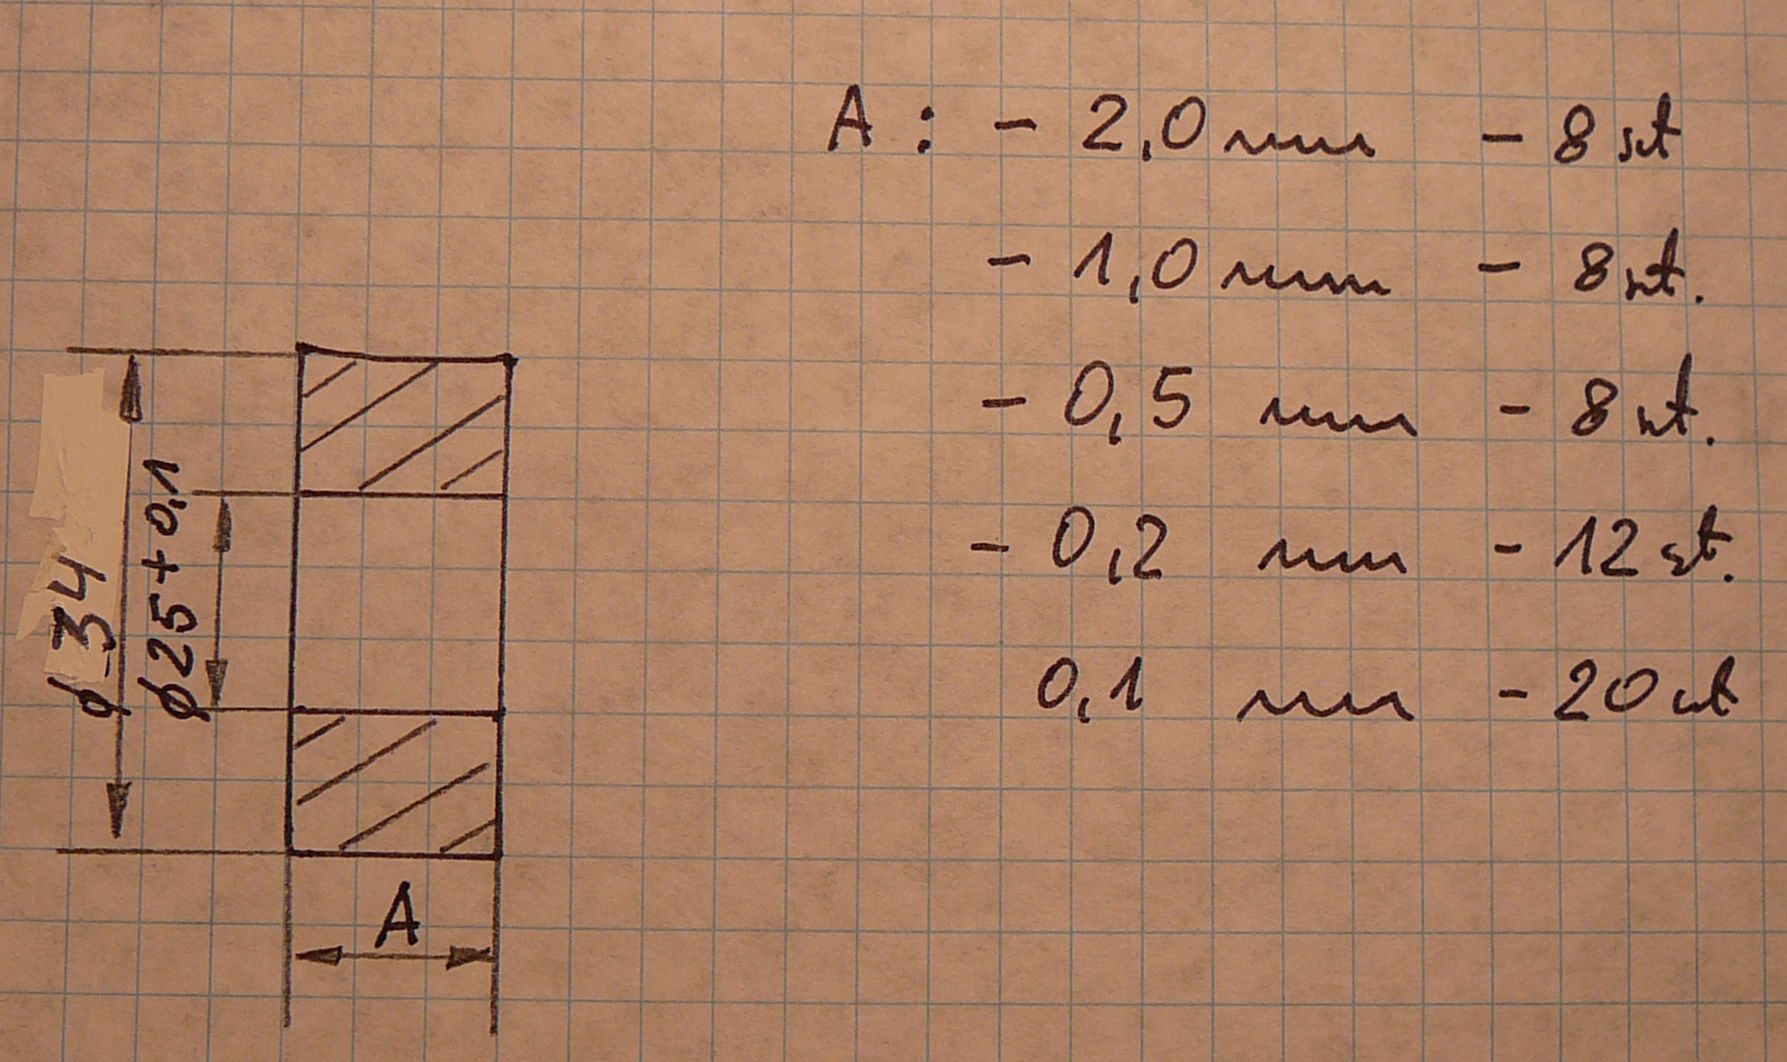 A: - 2,0 mm - 8 szt
- 1,0 mm - 8 szt.
- 0,5 mm - 8 szt.
- 0,2 mm - 12 szt.
0,1 mm - 20 szt
ϕ 34
ϕ25+0,1
A